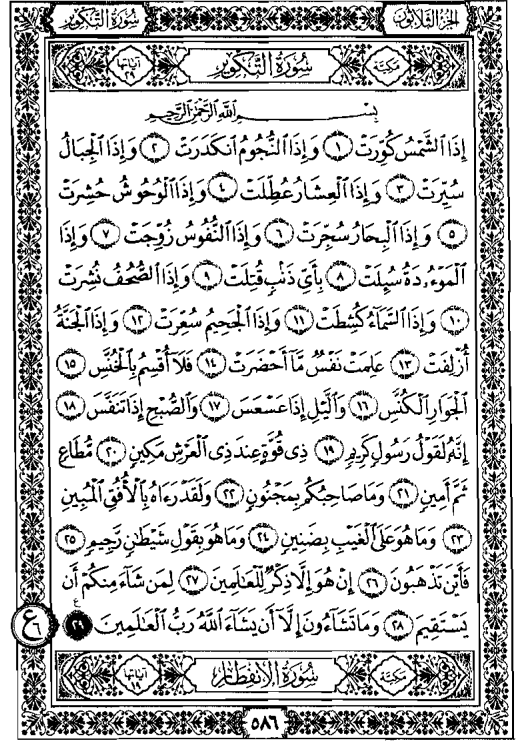 الجزء الثلاثون سورة التكوير
مكية سُورَةُ التَّكْوِيرِ آياتها ٢٩
بِسْمِ اللَّهِ الرَّحْمَٰنِ الرَّحِيمِ
إِذَا ٱلشَّمْسُ كُوِّرَتْ ١ وَإِذَا ٱلنُّجُومُ ٱنكَدَرَتْ ٢ وَإِذَا ٱلْجِبَالُ
سُيِّرَتْ ٣ وَإِذَا ٱلْعِشَارُ عُطِّلَتْ ٤ وَإِذَا ٱلْوُحُوشُ حُشِرَتْ
٥ وَإِذَا ٱلْبِحَارُ سُجِّرَتْ ٦ وَإِذَا ٱلنُّفُوسُ زُوِّجَتْ ٧ وَإِذَا
ٱلْمَوْءُۥدَةُ سُئِلَتْ ٨ بِأَيِّ ذَنۢبٍ قُتِلَتْ ٩ وَإِذَا ٱلصُّحُفُ نُشِرَتْ
١٠ وَإِذَا ٱلسَّمَآءُ كُشِطَتْ ١١ وَإِذَا ٱلْجَحِيمُ سُعِّرَتْ ١٢ وَإِذَا ٱلْجَنَّةُ
أُزْلِفَتْ ١٣ عَلِمَتْ نَفْسٌ مَّآ أَحْضَرَتْ ١٤ فَلَآ أُقْسِمُ بِٱلْخُنَّسِ ١٥
ٱلْجَوَارِ ٱلْكُنَّسِ ١٦ وَٱلَّيْلِ إِذَا عَسْعَسَ ١٧ وَٱلصُّبْحِ إِذَا تَنَفَّسَ ١٨
إِنَّهُۥ لَقَوْلُ رَسُولٍ كَرِيمٍ ١٩ ذِي قُوَّةٍ عِندَ ذِي ٱلْعَرْشِ مَكِينٍ ٢٠ مُّطَاعٍ
ثَمَّ أَمِينٍ ٢١ وَمَا صَاحِبُكُم بِمَجْنُونٍ ٢٢ وَلَقَدْ رَءَاهُ بِٱلْأُفُقِ ٱلْمُبِينِ
٢٣ وَمَا هُوَ عَلَى ٱلْغَيْبِ بِضَنِينٍ ٢٤ وَمَا هُوَ بِقَوْلِ شَيْطَٰنٍ رَّجِيمٍ ٢٥
فَأَيْنَ تَذْهَبُونَ ٢٦ إِنْ هُوَ إِلَّا ذِكْرٌ لِّلْعَٰلَمِينَ ٢٧ لِمَن شَآءَ مِنكُمْ أَن
يَسْتَقِيمَ ٢٨ وَمَا تَشَآءُونَ إِلَّآ أَن يَشَآءَ ٱللَّهُ رَبُّ ٱلْعَٰلَمِينَ ٢٩ ع
ع ٦
مكية سُورَةُ الِانفِطَارِ آياتها ١٩
٥٨٦